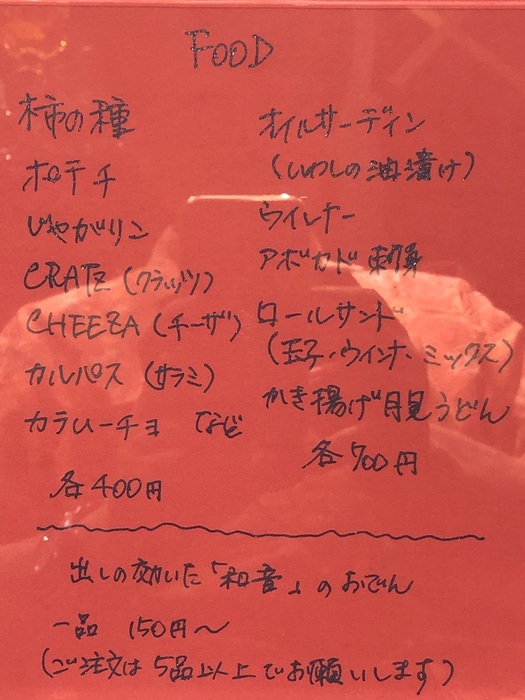 FOOD
柿の種
ポテチ
じゃがリン
CRATZ(クラッツ)
CHEEZA(チーザ)
カルパス(サラミ)
カラムーチョ など
各400円
オイルサーディン
(いわしの油漬け)
ウイルナー
アボカド刺身
ロールサンド
(玉子・ウインナ・ミックス)
かき揚げ月見うどん
各700円
出しの効いた「和音」のおでん
一品 150円〜
(ご注文は5品以上でお願いします)